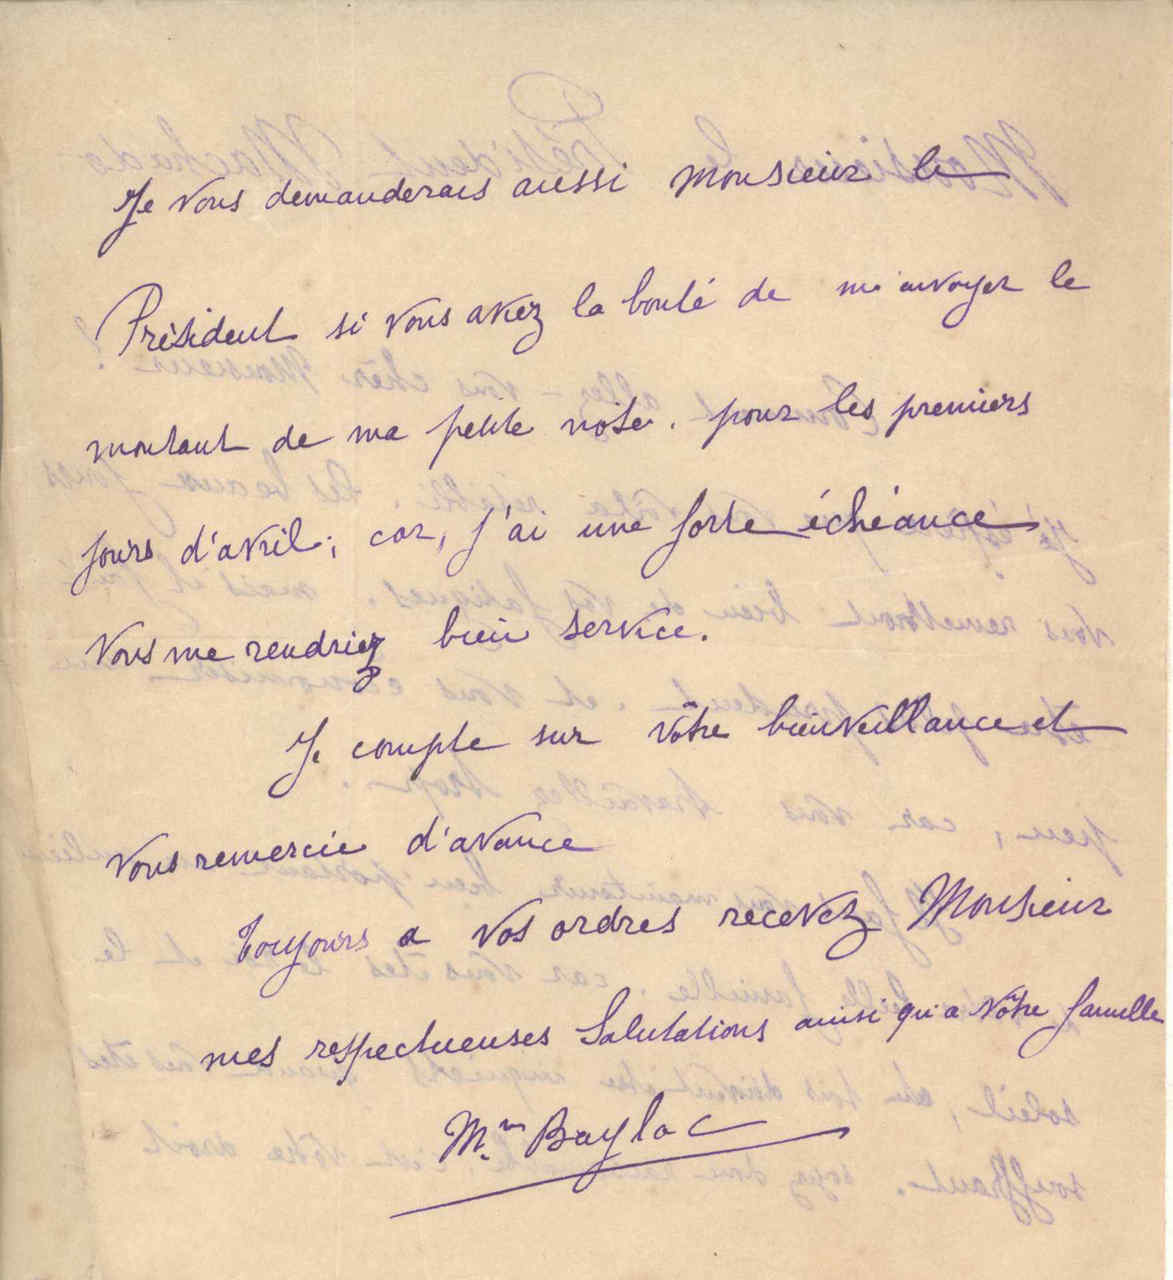 Je vous demanderais aussi Monsieur le
Président si vous aviez la bonté de m'envoyer le
montant de ma petite note. pour les premiers
jours d'avril; car, j'ai une forte échéance
vous me rendriez bien service.
Je compte sur vôtre bienveillance et
vous remercie d'avance
Toujours a vos ordres recevez Monsieur
mes respectueuses Salutations ainsi qu'a vôtre famille
Mme Baylac